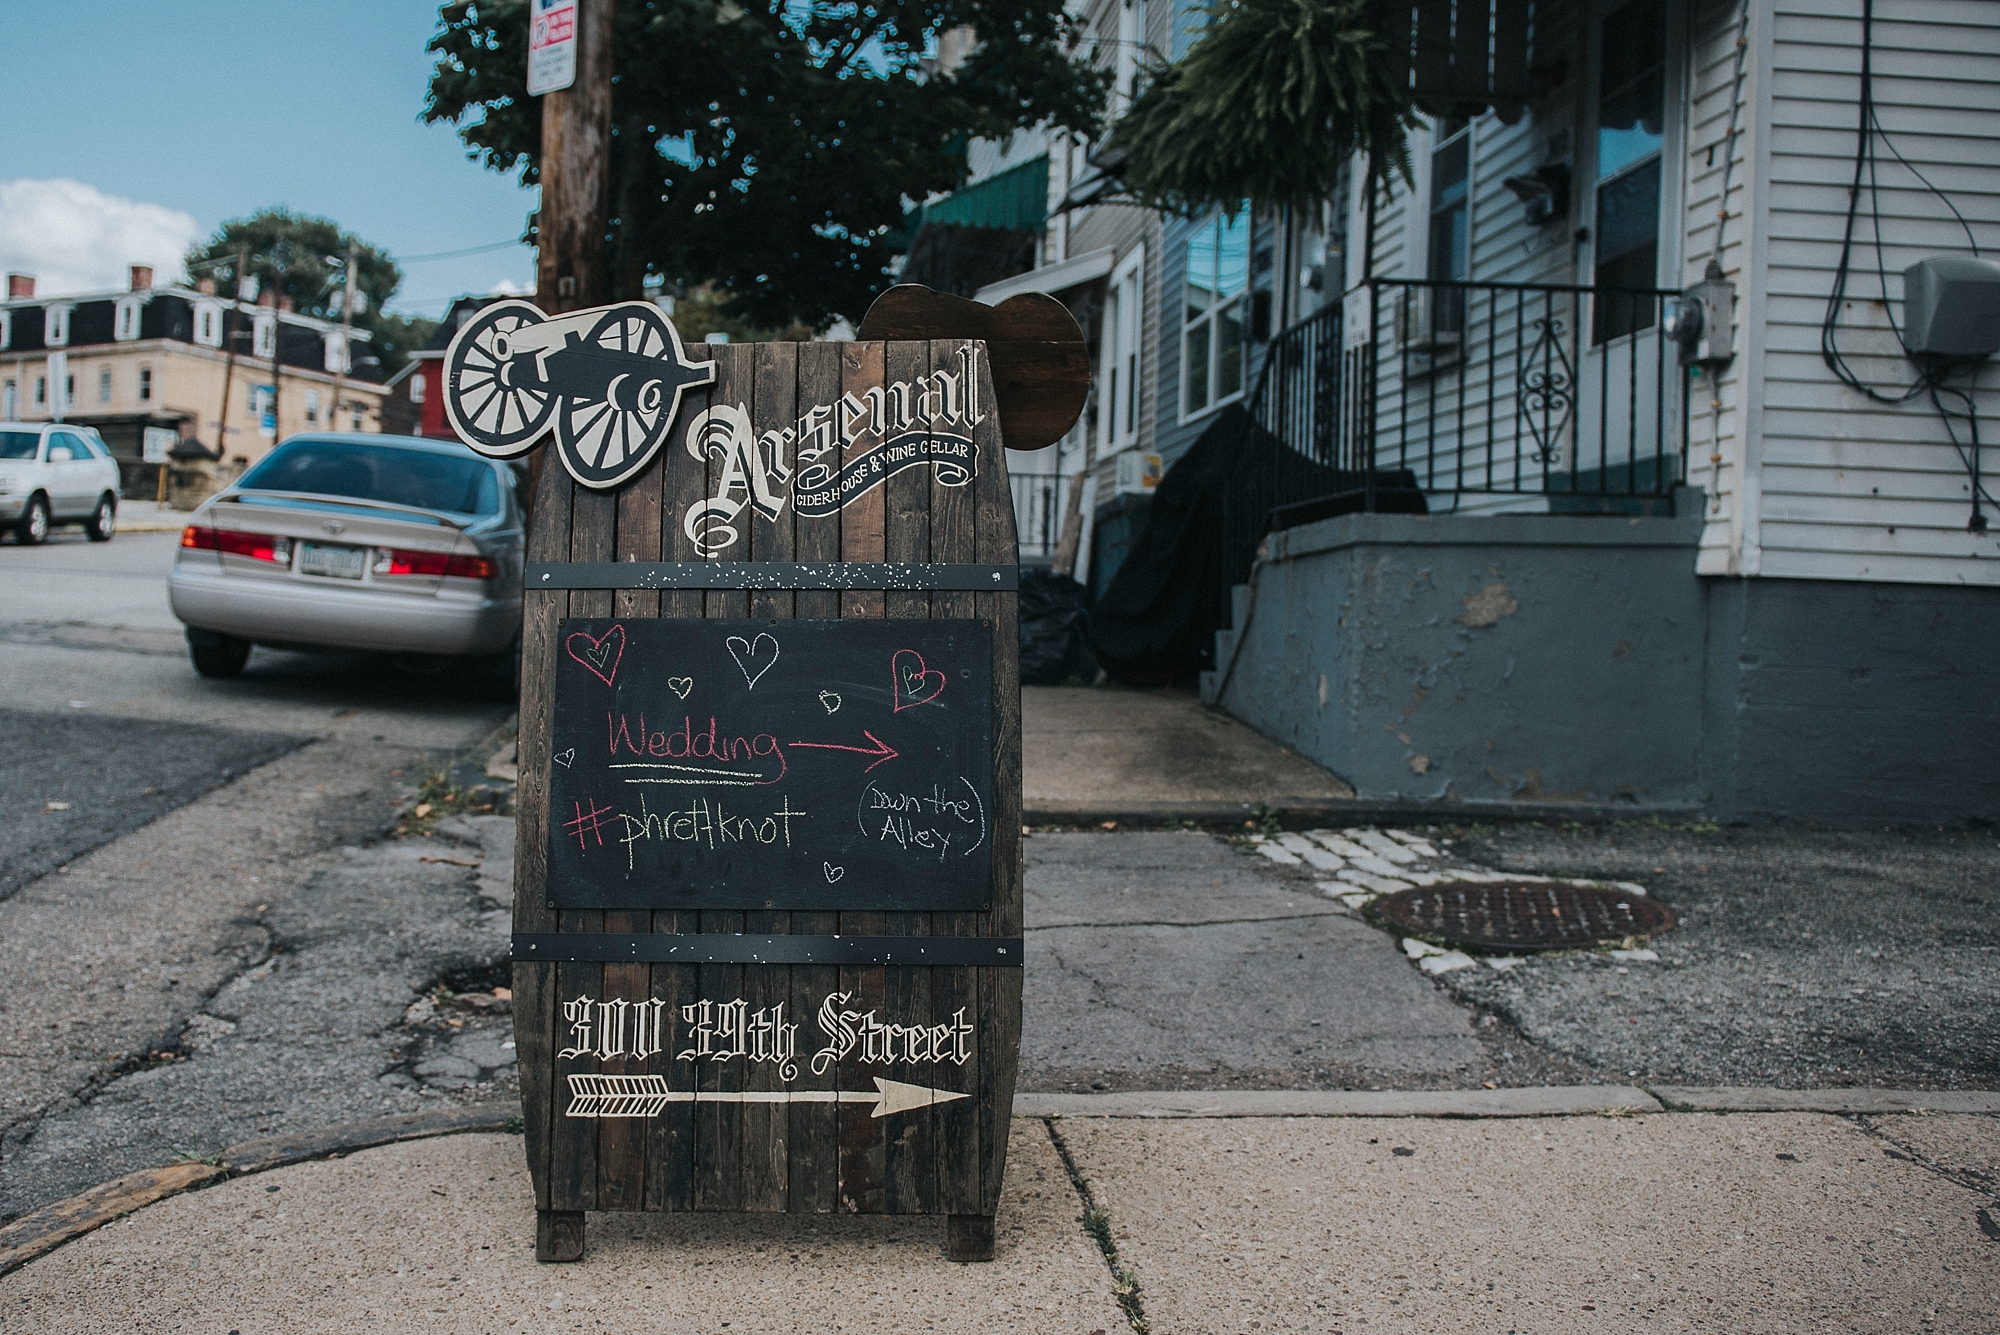 Arsenal
CIDERHOUSE & WINE CELLAR
Wedding
#phrettknot
(Down the
Alley)
300 39th Street